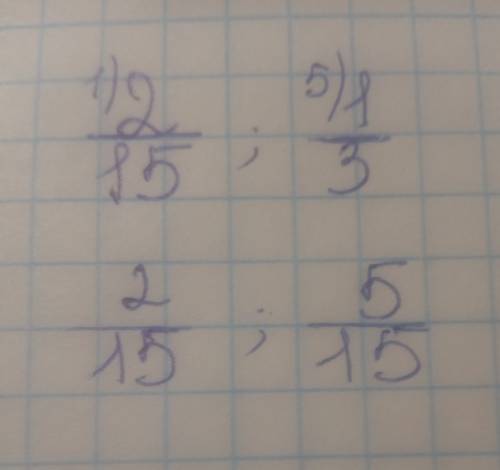 1) 2/15 ; 5) 1/3
2/15 ; 5/15